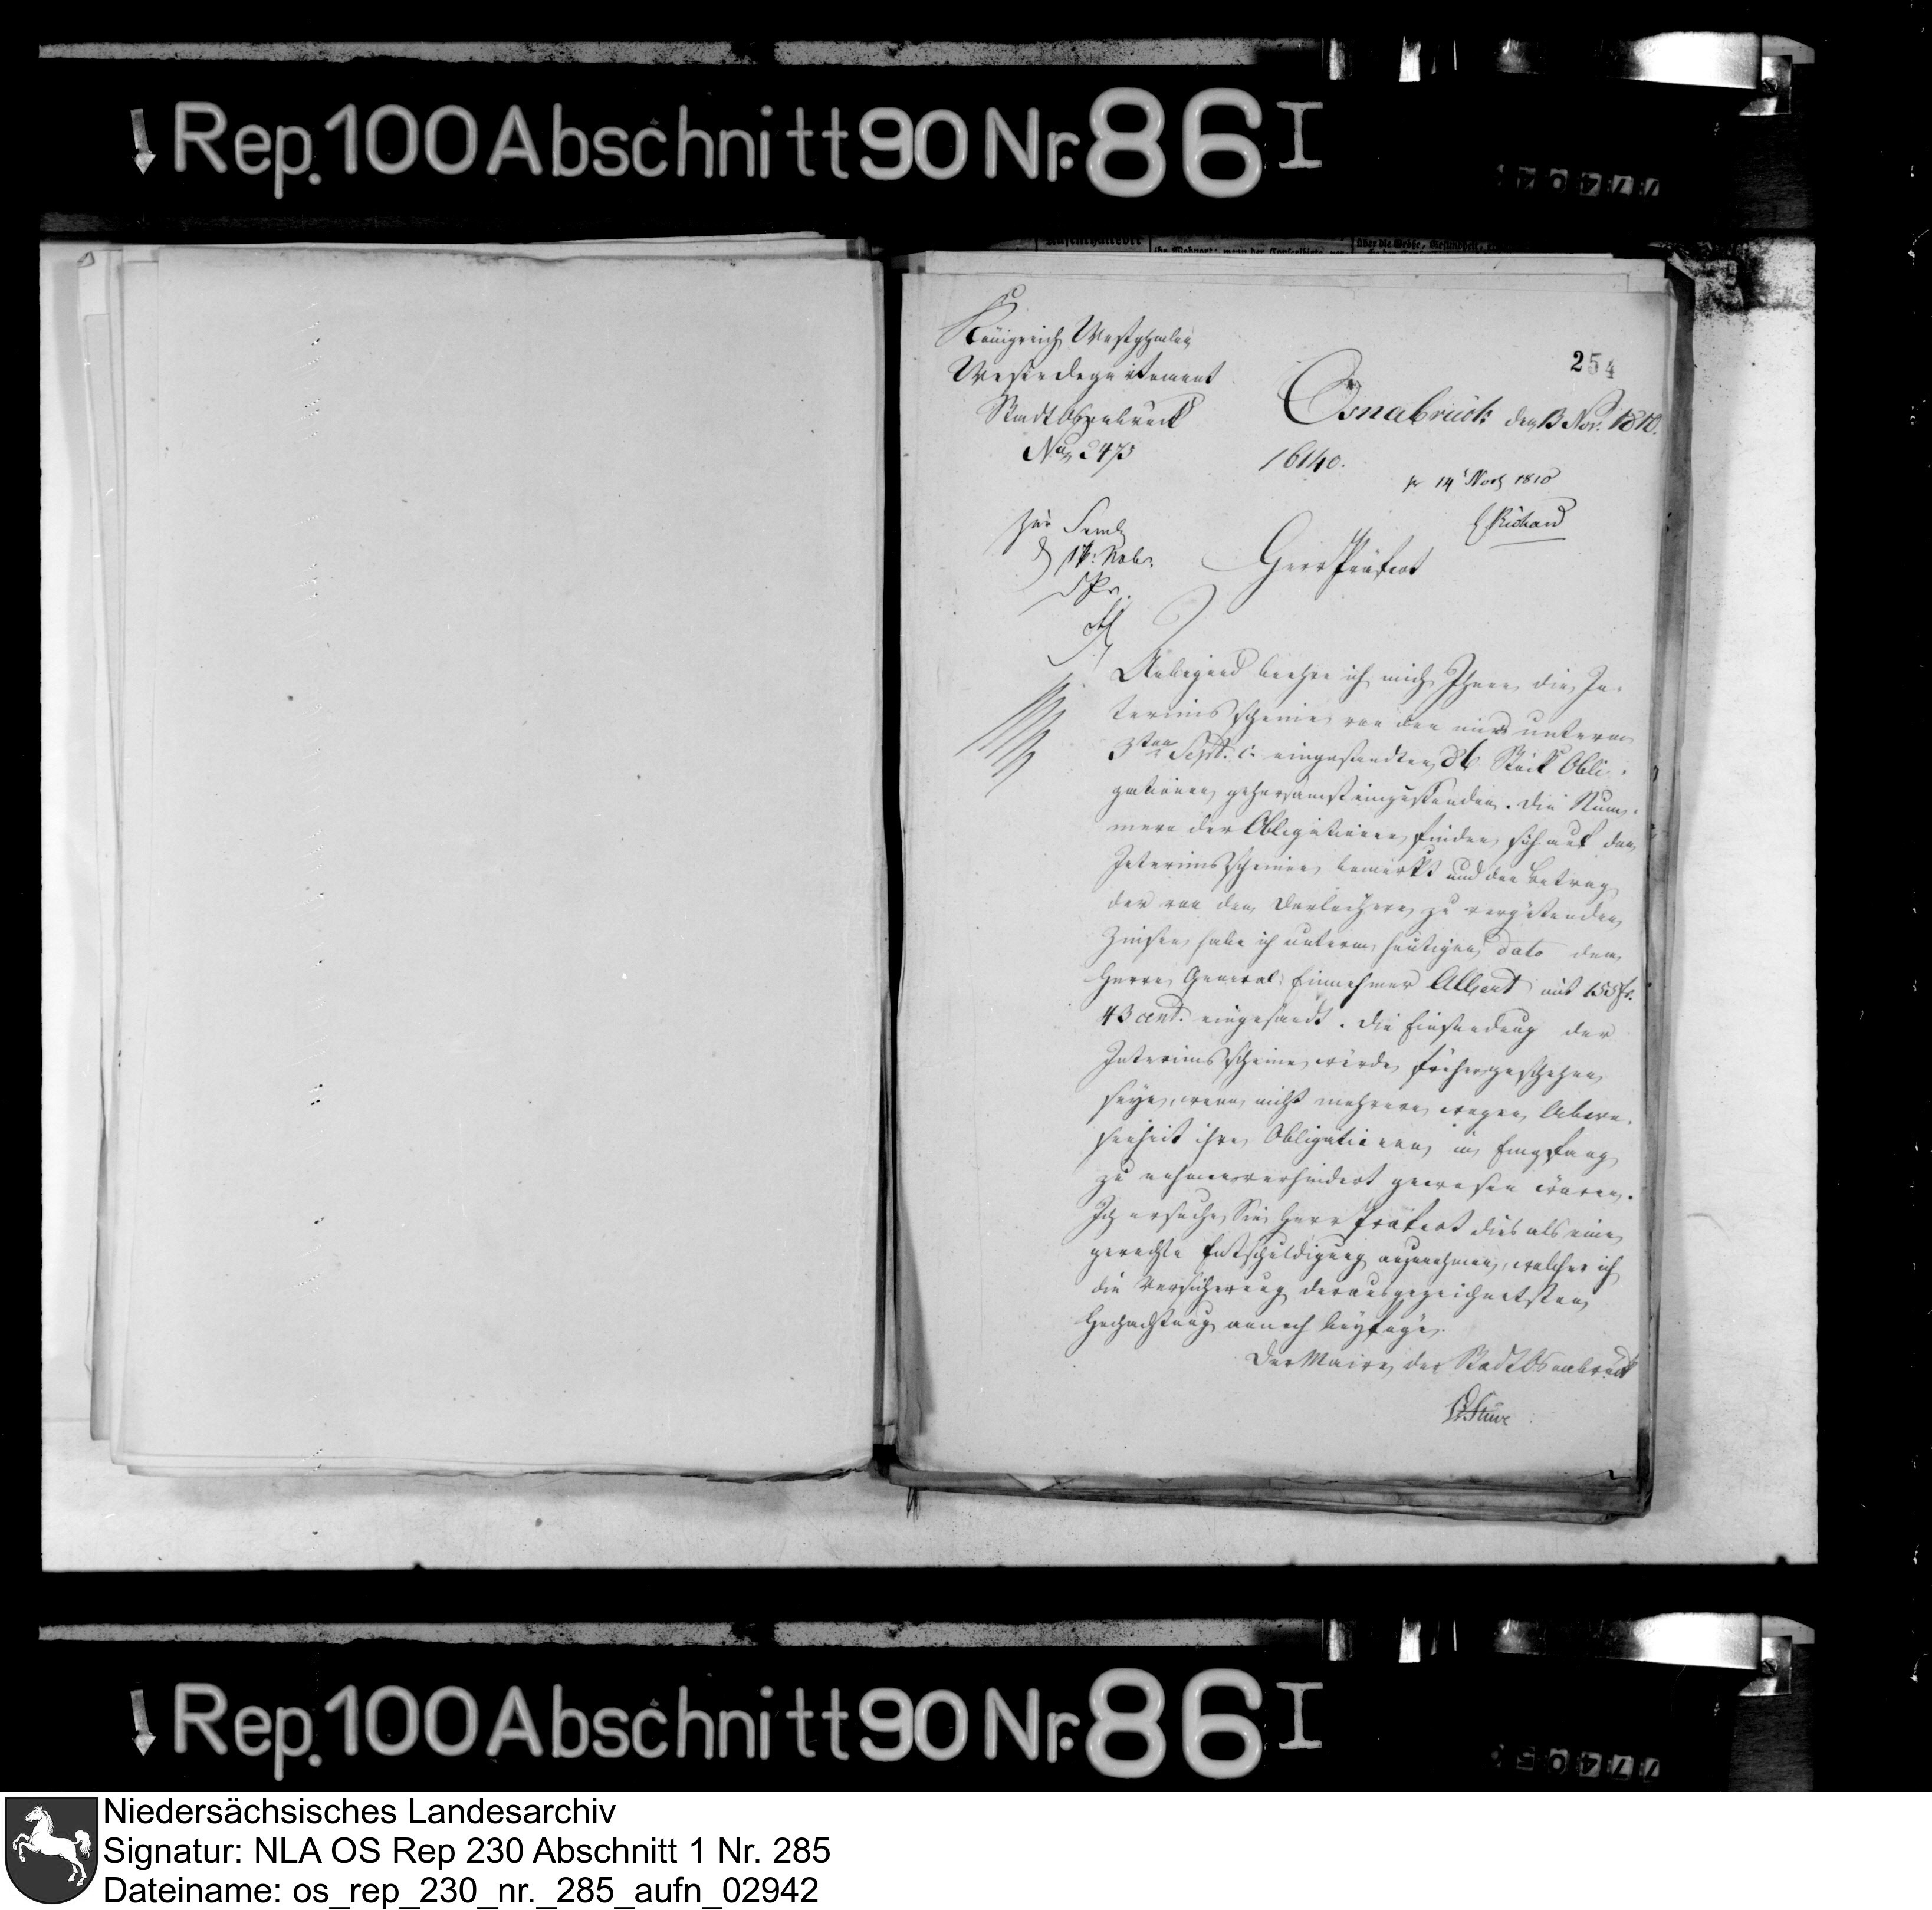 Rep. 100 Abschnitt 90 Nr. 86 I
254
Königreich Westphalen
Weserdepartement
Stadt Osnabrück
No 2475
Osnabrück den 13 Nov. 1810.
16140.
pr 14 Nov 1810
Herr Präfect
Anliegend beehre ich mich Ihnen die In-
terims Scheine von den mir unterm
3ten Sept. c. eingesandten 86 Stück Obli-
gationen gehorsamst einzusenden. Die Num-
mern der Obligationen finden sich auf den
Interims Scheinen bemerkt und den Betrag
der von den Darleihern zu vergütenden
Zinsen habe ich unterm heutigen dato dem
Herrn General-Einnehmer Albert mit 155 fr.
43 cent. eingesandt. Die Einsendung der
Interims Scheine würde früher geschehen
seyn, wenn nicht mehrere wegen Abwe-
senheit ihre Obligationen in Empfang
zu nehmen verhindert gewesen wären.
Ich ersuche Sie Herr Präfect dies als eine
gerechte Entschuldigung anzunehmen, welcher ich
die Versicherung der ausgezeichnetsten
Hochachtung annoch beyfüge.
Der Maire der Stadt Osnabrück
Stüve
Rep. 100 Abschnitt 90 Nr. 86 I
Niedersächsisches Landesarchiv
Signatur: NLA OS Rep 230 Abschnitt 1 Nr. 285
Dateiname: os_rep_230_nr._285_aufn_02942